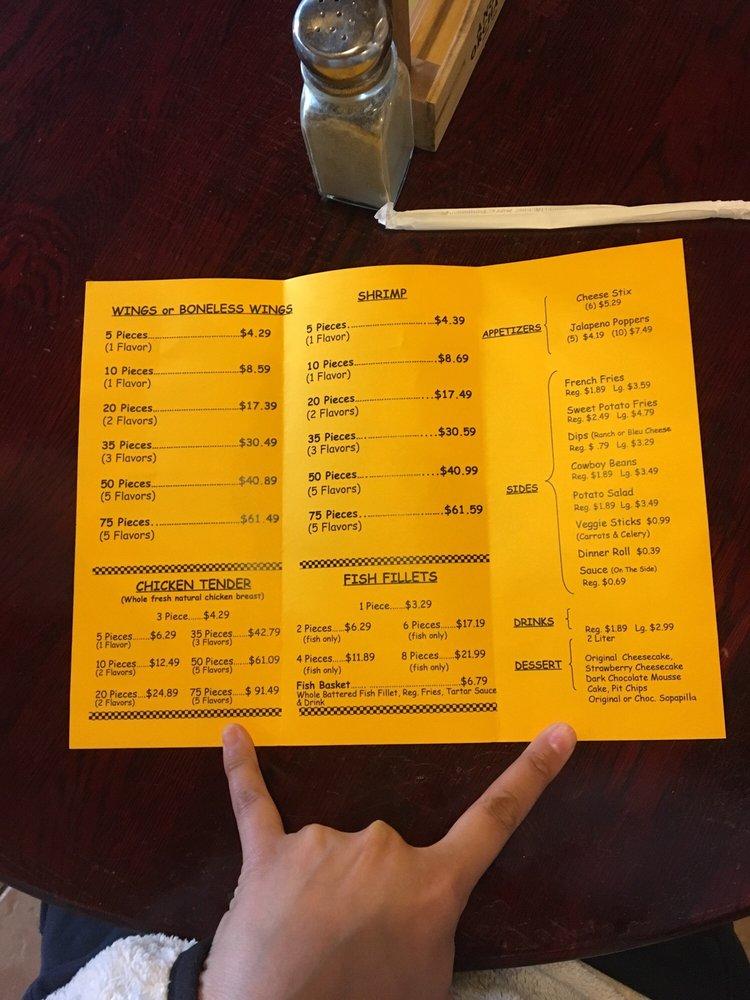 WINGS or BONELESS WINGS
5 Pieces.....................$4.29
(1 Flavor)
10 Pieces.....................$8.59
(1 Flavor)
20 Pieces.....................$17.39
(2 Flavors)
35 Pieces.....................$30.49
(3 Flavors)
50 Pieces.....................$40.89
(5 Flavors)
75 Pieces.....................$61.49
(5 Flavors)
CHICKEN TENDER
(Whole fresh natural chicken breast)
3 Piece......$4.29
5 Pieces......$6.29 35 Pieces......$42.79
(1 Flavor) (3 Flavors)
10 Pieces......$12.49 50 Pieces......$61.09
(2 Flavors) (5 Flavors)
20 Pieces....$24.89 75 Pieces....$ 91.49
(2 Flavors) (5 Flavors)
SHRIMP
5 Pieces.....................$4.39
(1 Flavor)
10 Pieces.....................$8.69
(1 Flavor)
20 Pieces.....................$17.49
(2 Flavors)
35 Pieces.....................$30.59
(3 Flavors)
50 Pieces.....................$40.99
(5 Flavors)
75 Pieces.....................$61.59
(5 Flavors)
FISH FILLETS
1 Piece......$3.29
2 Pieces......$6.29 6 Pieces......$17.19
(fish only) (fish only)
4 Pieces......$11.89 8 Pieces......$21.99
(fish only) (fish only)
Fish Basket.....................$6.79
Whole Battered Fish Fillet, Reg. Fries, Tartar Sauce
& Drink
APPETIZERS
Cheese Stix
(6) $5.29
Jalapeno Poppers
(5) $4.19 (10) $7.49
SIDES
French Fries
Reg. $1.89 Lg. $3.59
Sweet Potato Fries
Reg. $2.49 Lg. $4.79
Dips (Ranch or Bleu Cheese
Reg. $ .79 Lg. $3.29
Cowboy Beans
Reg. $1.89 Lg. $3.49
Potato Salad
Reg. $1.89 Lg. $3.49
Veggie Sticks $0.99
(Carrots & Celery)
Dinner Roll $0.39
Sauce (On The Side)
Reg. $0.69
DRINKS
Reg. $1.89 Lg. $2.99
2 Liter
DESSERT
Original Cheesecake,
Strawberry Cheesecake
Dark Chocolate Mousse
Cake, Pit Chips
Original or Choc. Sopapilla